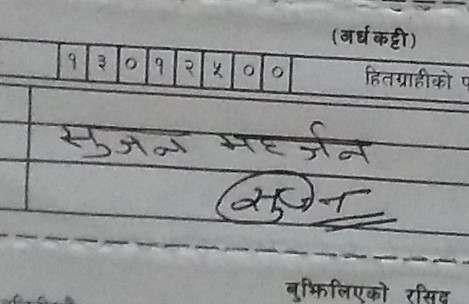 (अर्धकट्टी)
१ ३ ० १ २ ५ ० ० हितग्राहीको
सुजन महर्जन
बुझिलिएको रसिद